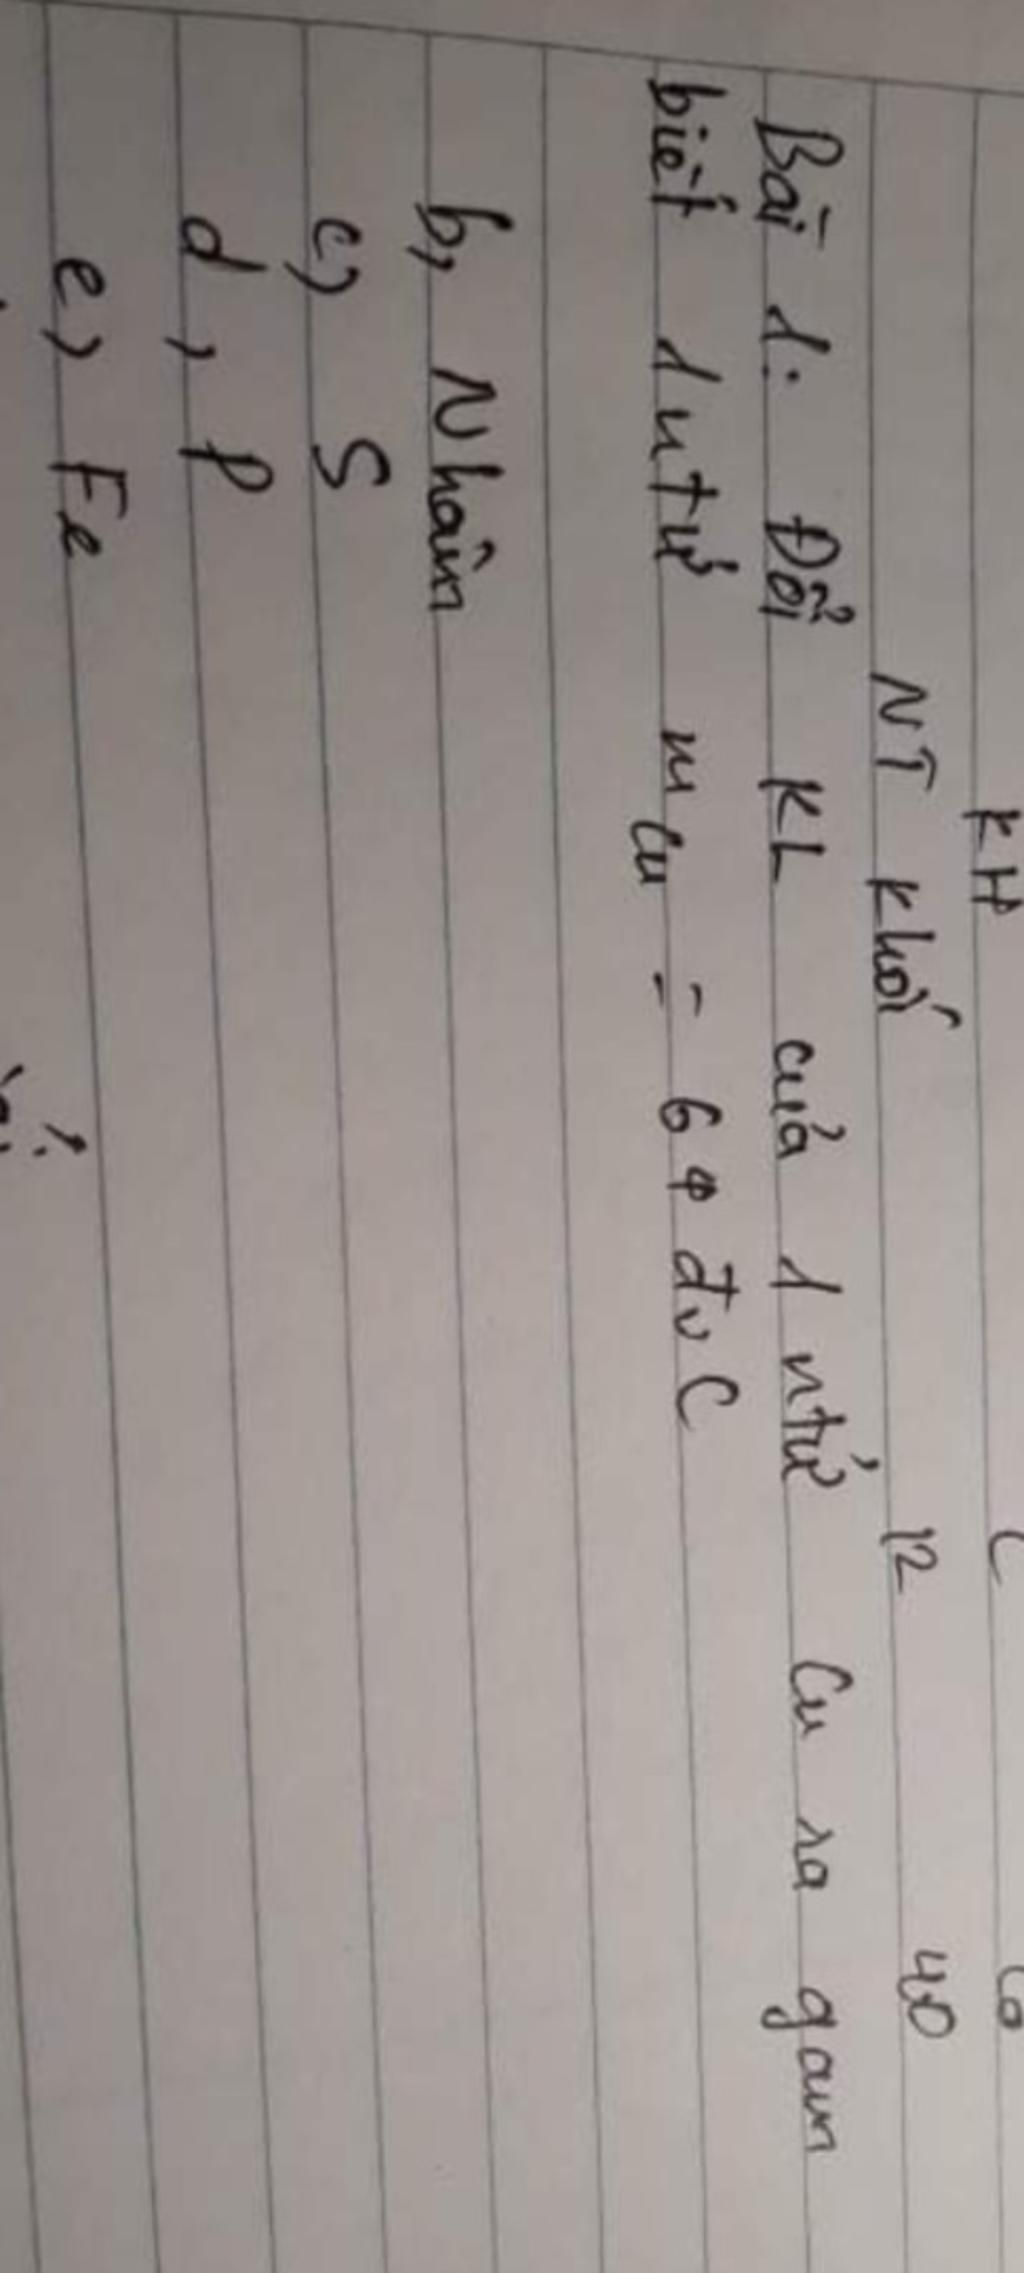 KH C Ca
NT khối 12 40
Bài 1: Đổi KL của 1 ntử Cu ra gam
biết 1 ntử m Cu = 64 đvC
b, Nhôm
c, S
d, P
e, Fe